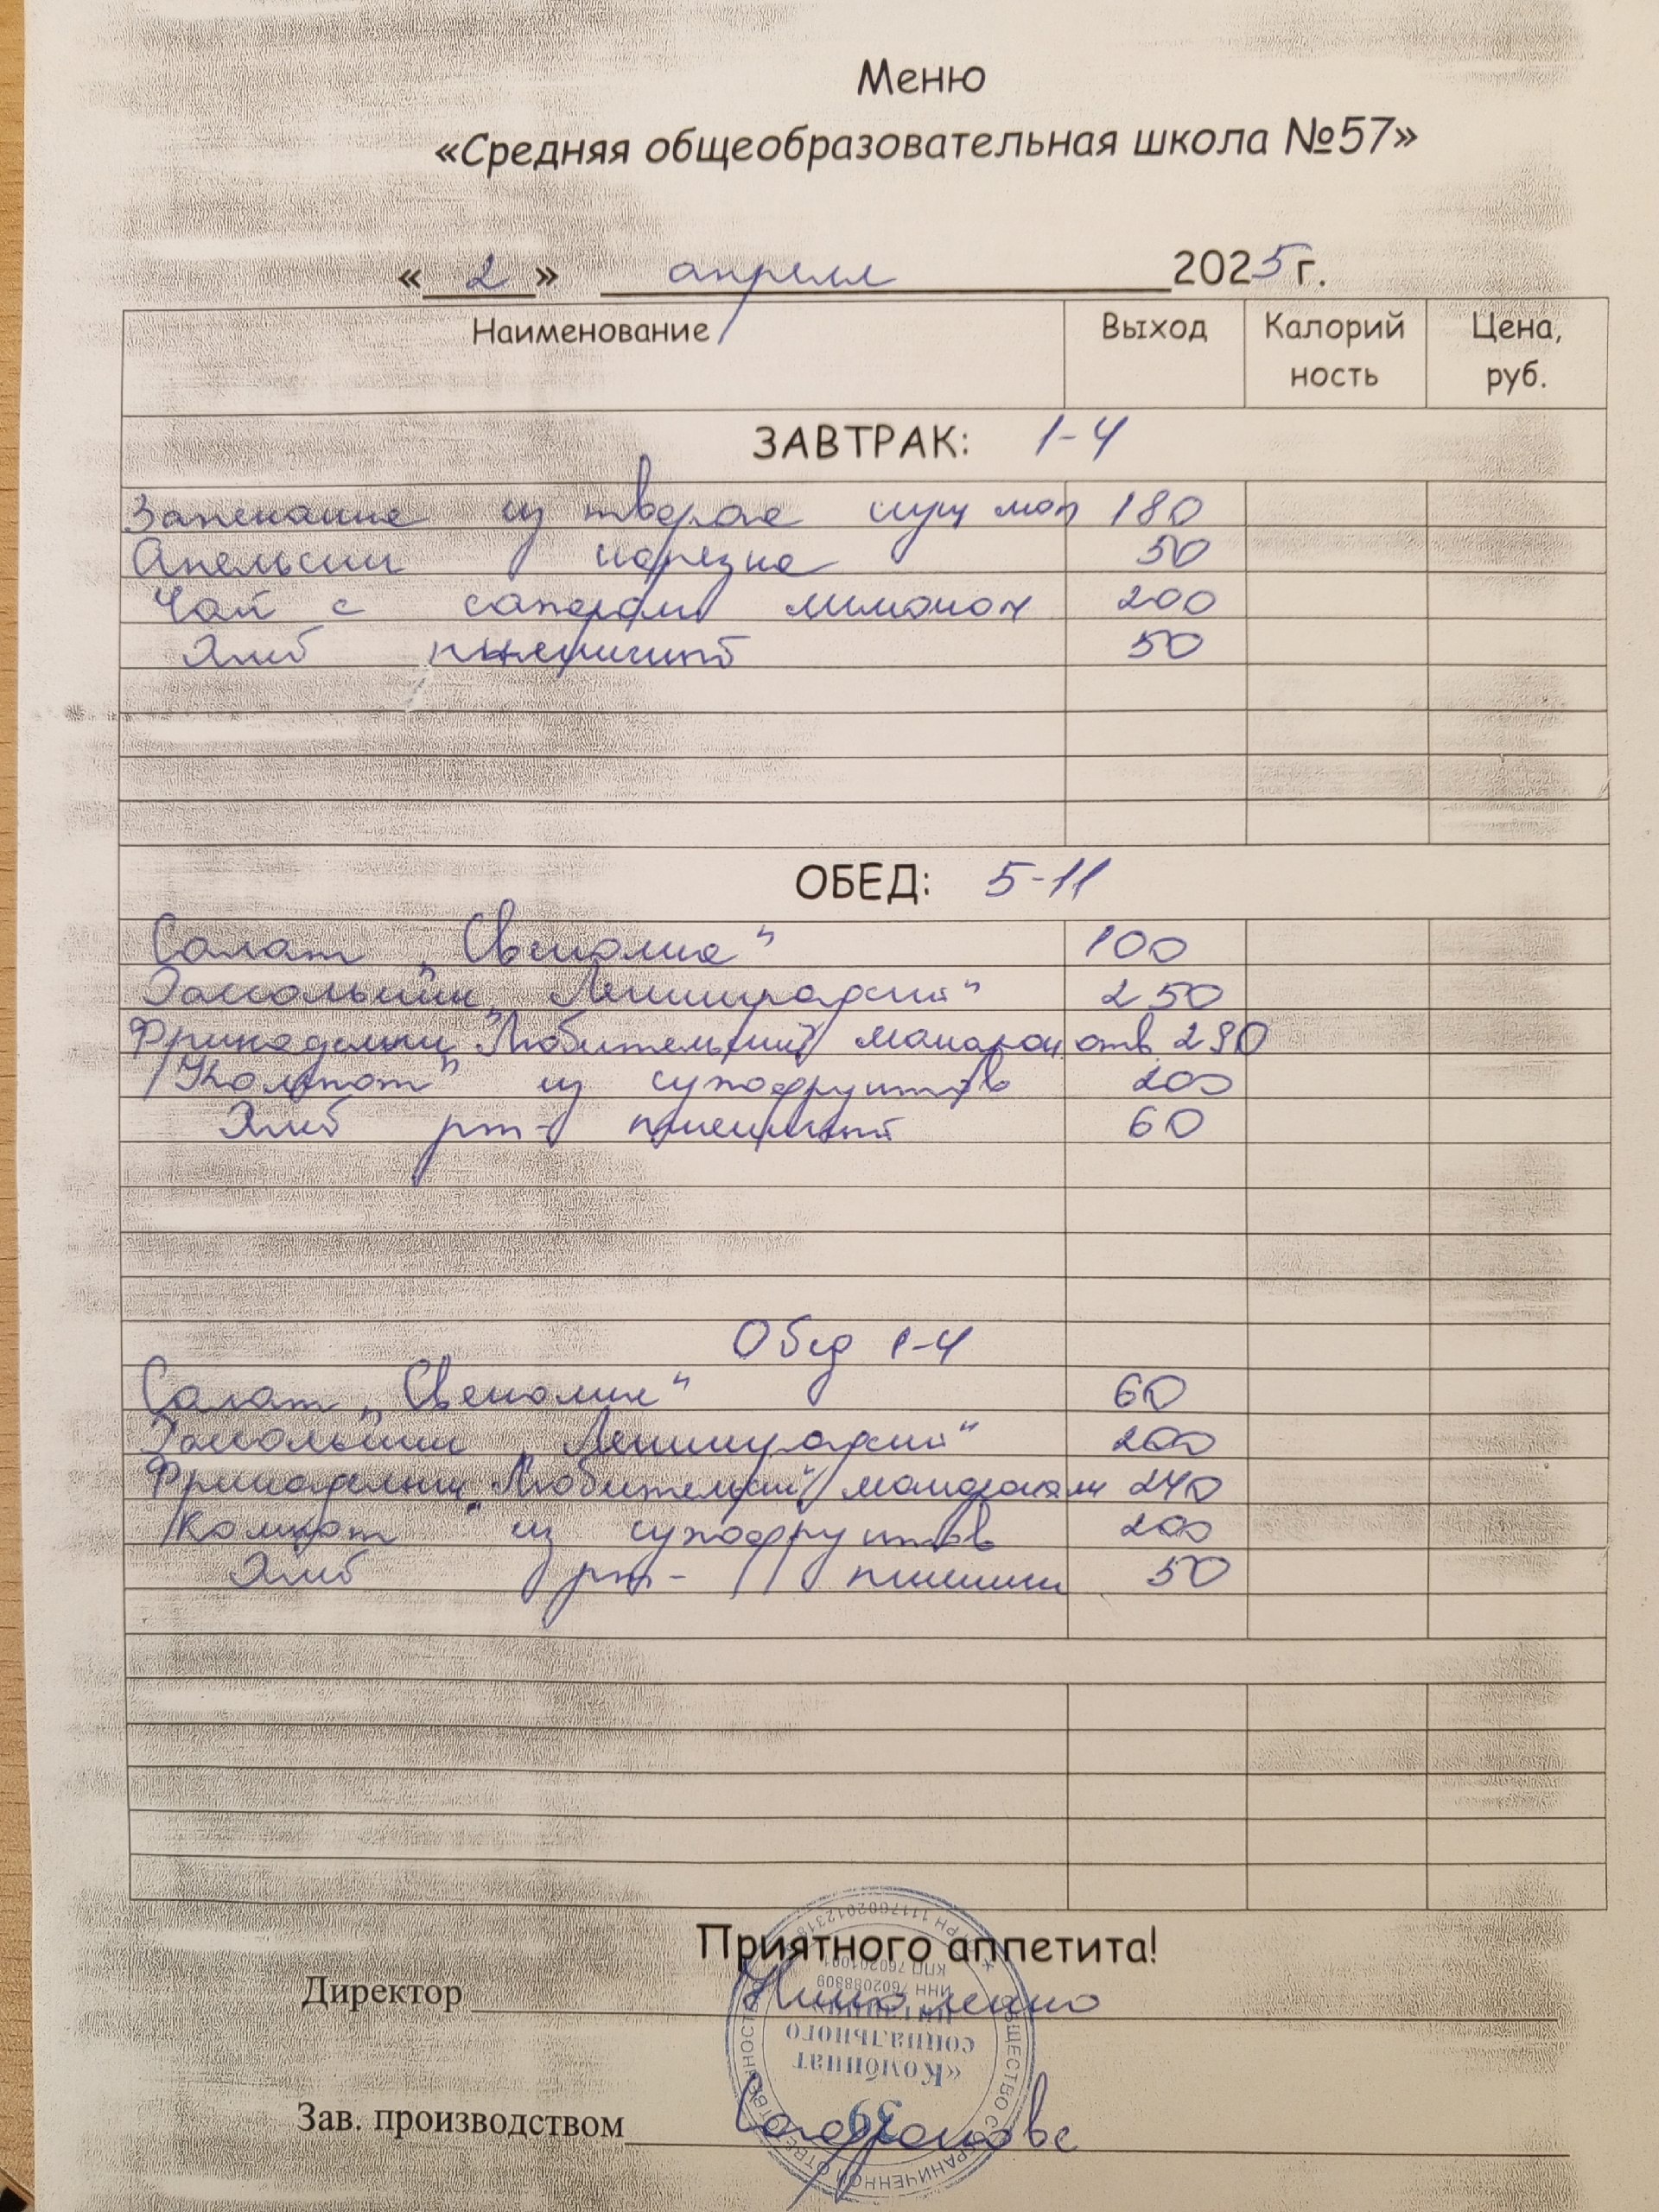 Меню
«Средняя общеобразовательная школа №57»
« 2 » апреля 2025 г.
Наименование Выход Калорий ность Цена, руб.
ЗАВТРАК: 1-4
Запеканка из творога сгущ мол 180
Апельсин нарезка 50
Чай с сахаром лимоном 200
Хлеб пшеничный 50
ОБЕД: 5-11
Салат „Свеколка" 100
Рассольник „Ленинградский" 250
Фрикадельки "Любительский" макарон отв 290
Компот из сухофруктов 200
Хлеб рж- пшеничный 60
Обед 1-4
Салат „Свеколка" 60
Рассольник „Ленинградский" 200
Фрикадельки "Любительский" макаронами 240
Компот из сухофруктов 200
Хлеб рж- пшенич 50
Приятного аппетита!
Директор
Зав. производством
ОБЩЕСТВО С ОГРАНИЧЕННОЙ ОТВЕТСТВЕННОСТЬЮ
«Комбинат
социального
питания»
ИНН 7602088809
КПП 760201001
39